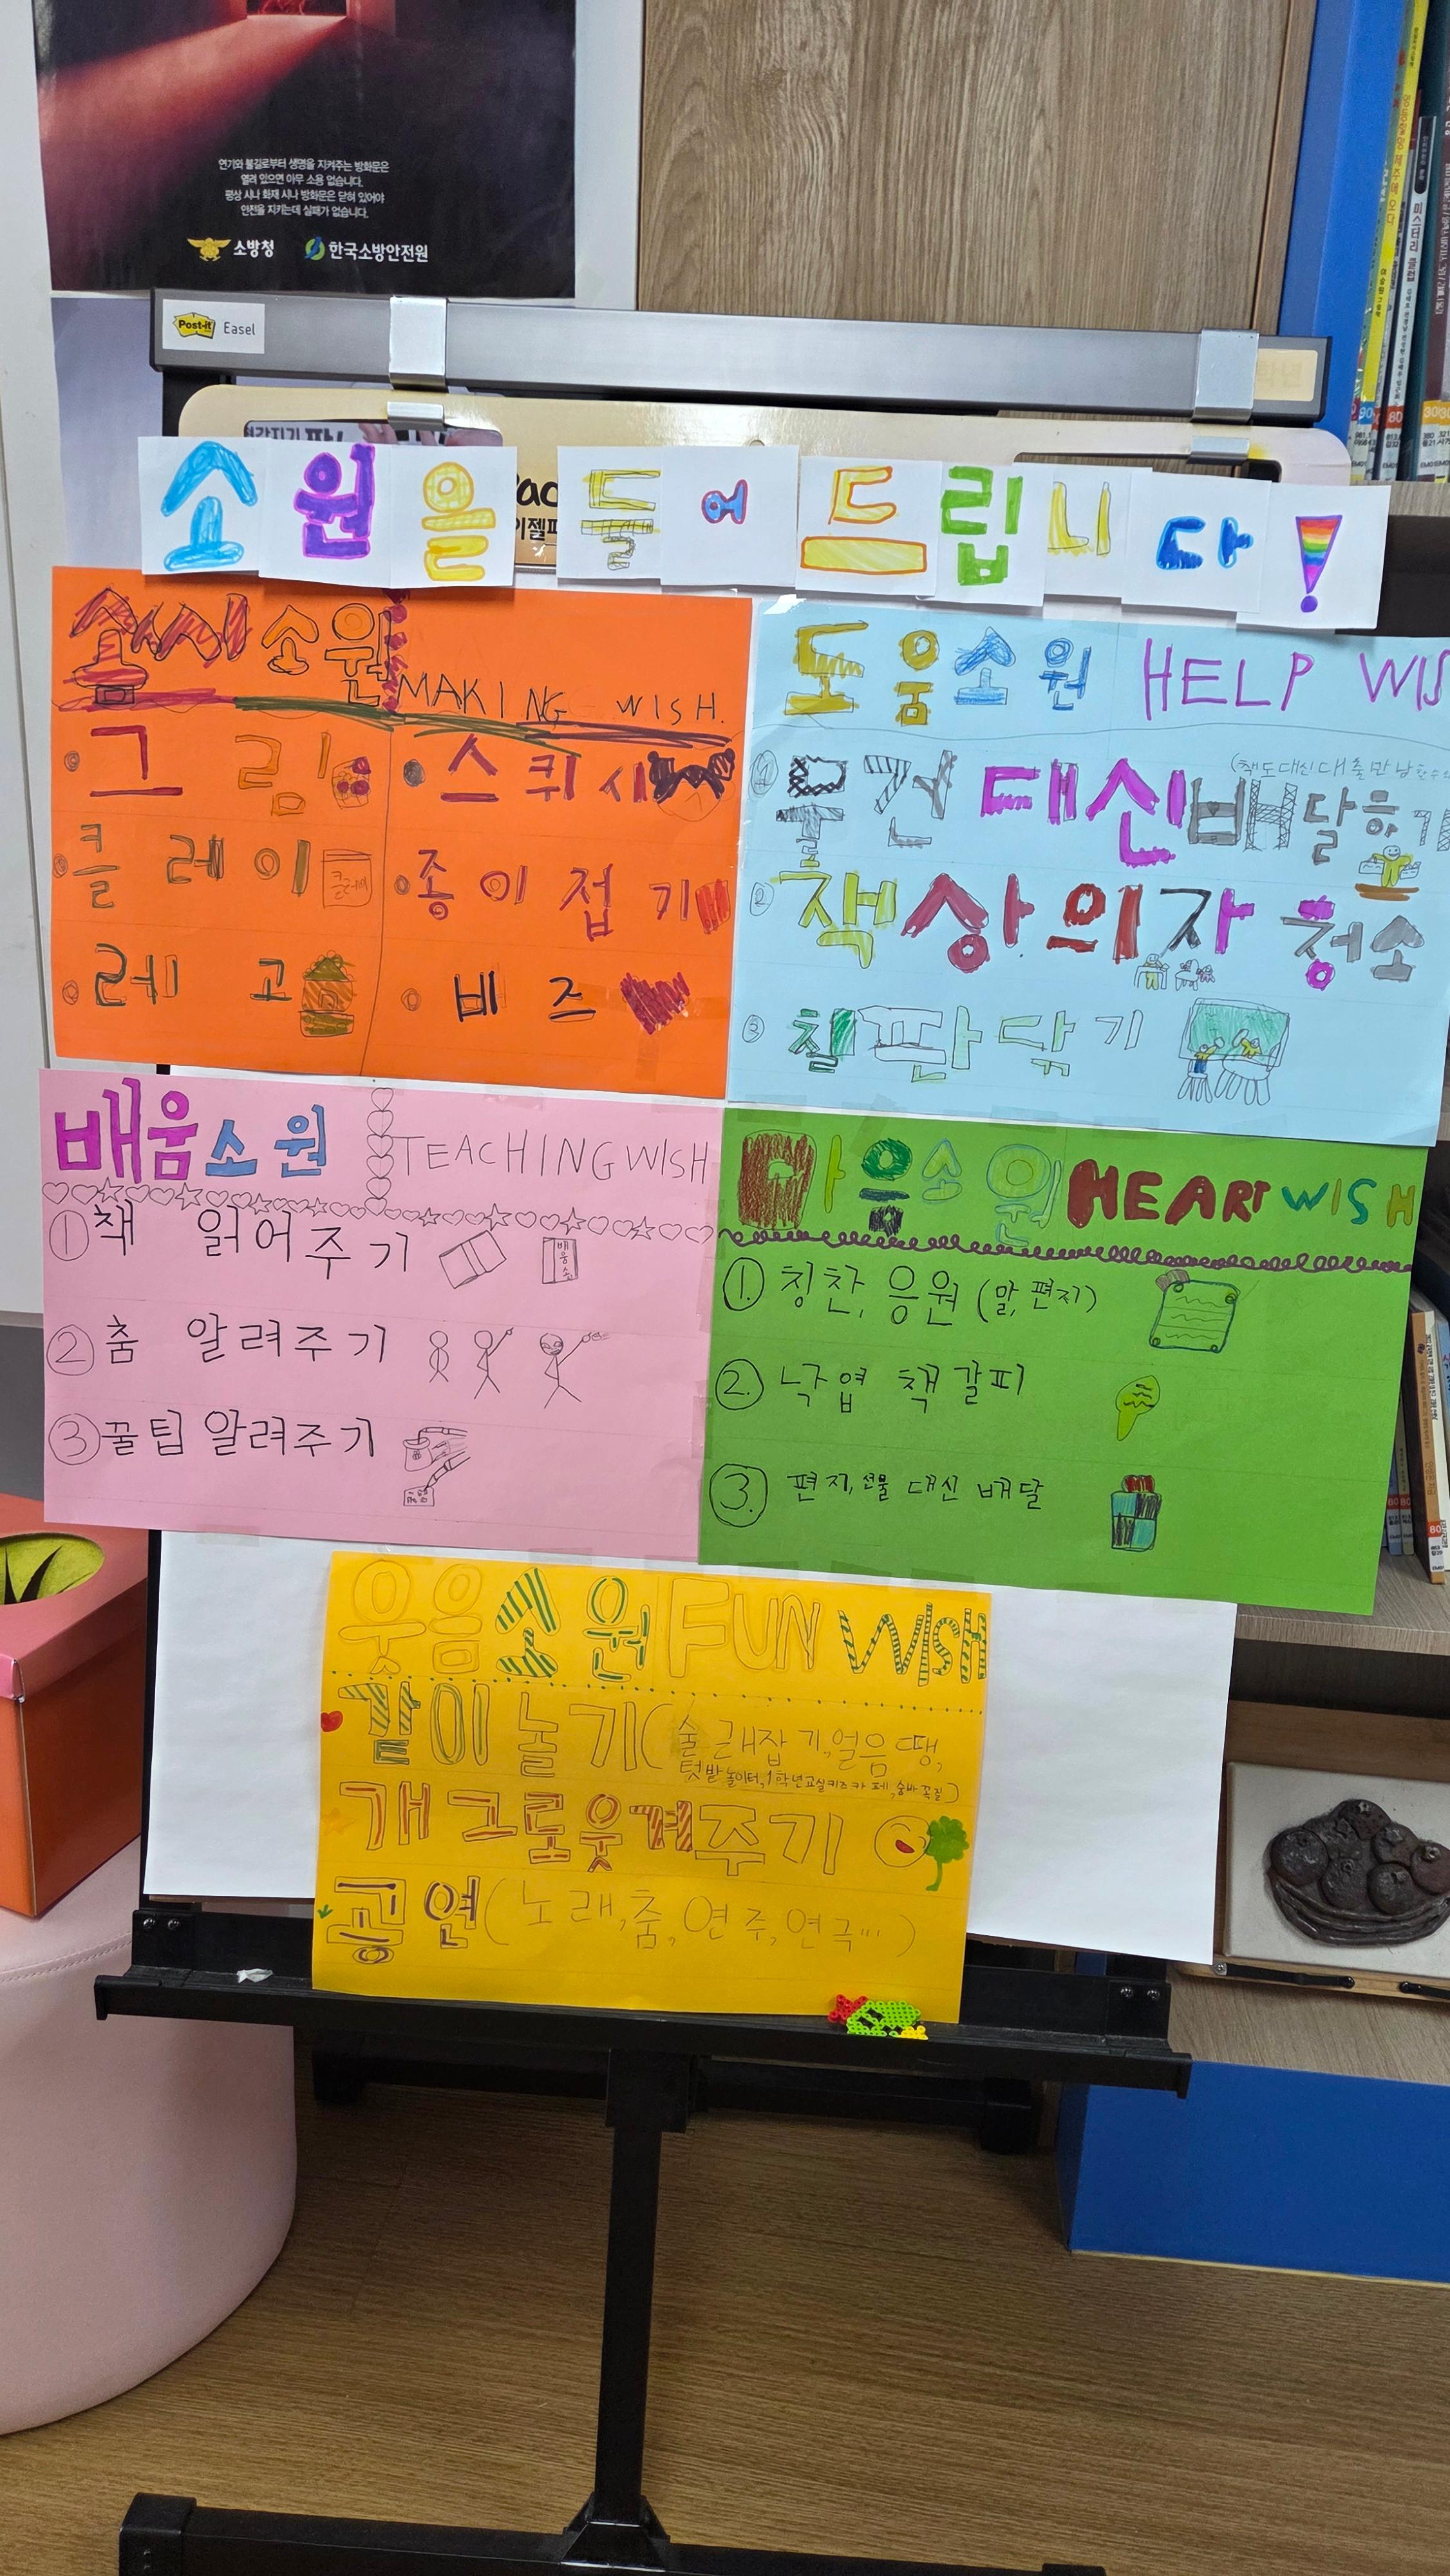 연기와 불길로부터 생명을 지켜주는 방화문은
열려 있으면 아무 소용 없습니다.
평상 시나 화재 시나 방화문은 닫혀 있어야
안전을 지키는데 실패가 없습니다.
소방청 한국소방안전원
Post-it Easel
소원을 들어드립니다!
솜씨소원 MAKING WISH.
그림
클레이
레고
스퀴시
종이접기
비즈
도움소원 HELP WIS
① 물건 대신 배달하기
(책도 대신 대출 반납
② 책상 의자 청소
③ 칠판 닦기
배움소원 TEACHING WISH
① 책 읽어주기
배움소
② 춤 알려주기
③ 꿀팁 알려주기
마음소원 HEART WISH
①. 칭찬, 응원 (말, 편지)
②. 낙엽 책갈피
③. 편지, 선물 대신 배달
웃음소원 FUN WISH
같이 놀기(술래잡기, 얼음땡,
텃밭놀이터, 1학년교실키즈카페, 숨바꼭질)
개그로 웃겨주기
공연(노래, 춤, 연주, 연극...)
미스터리 클럽